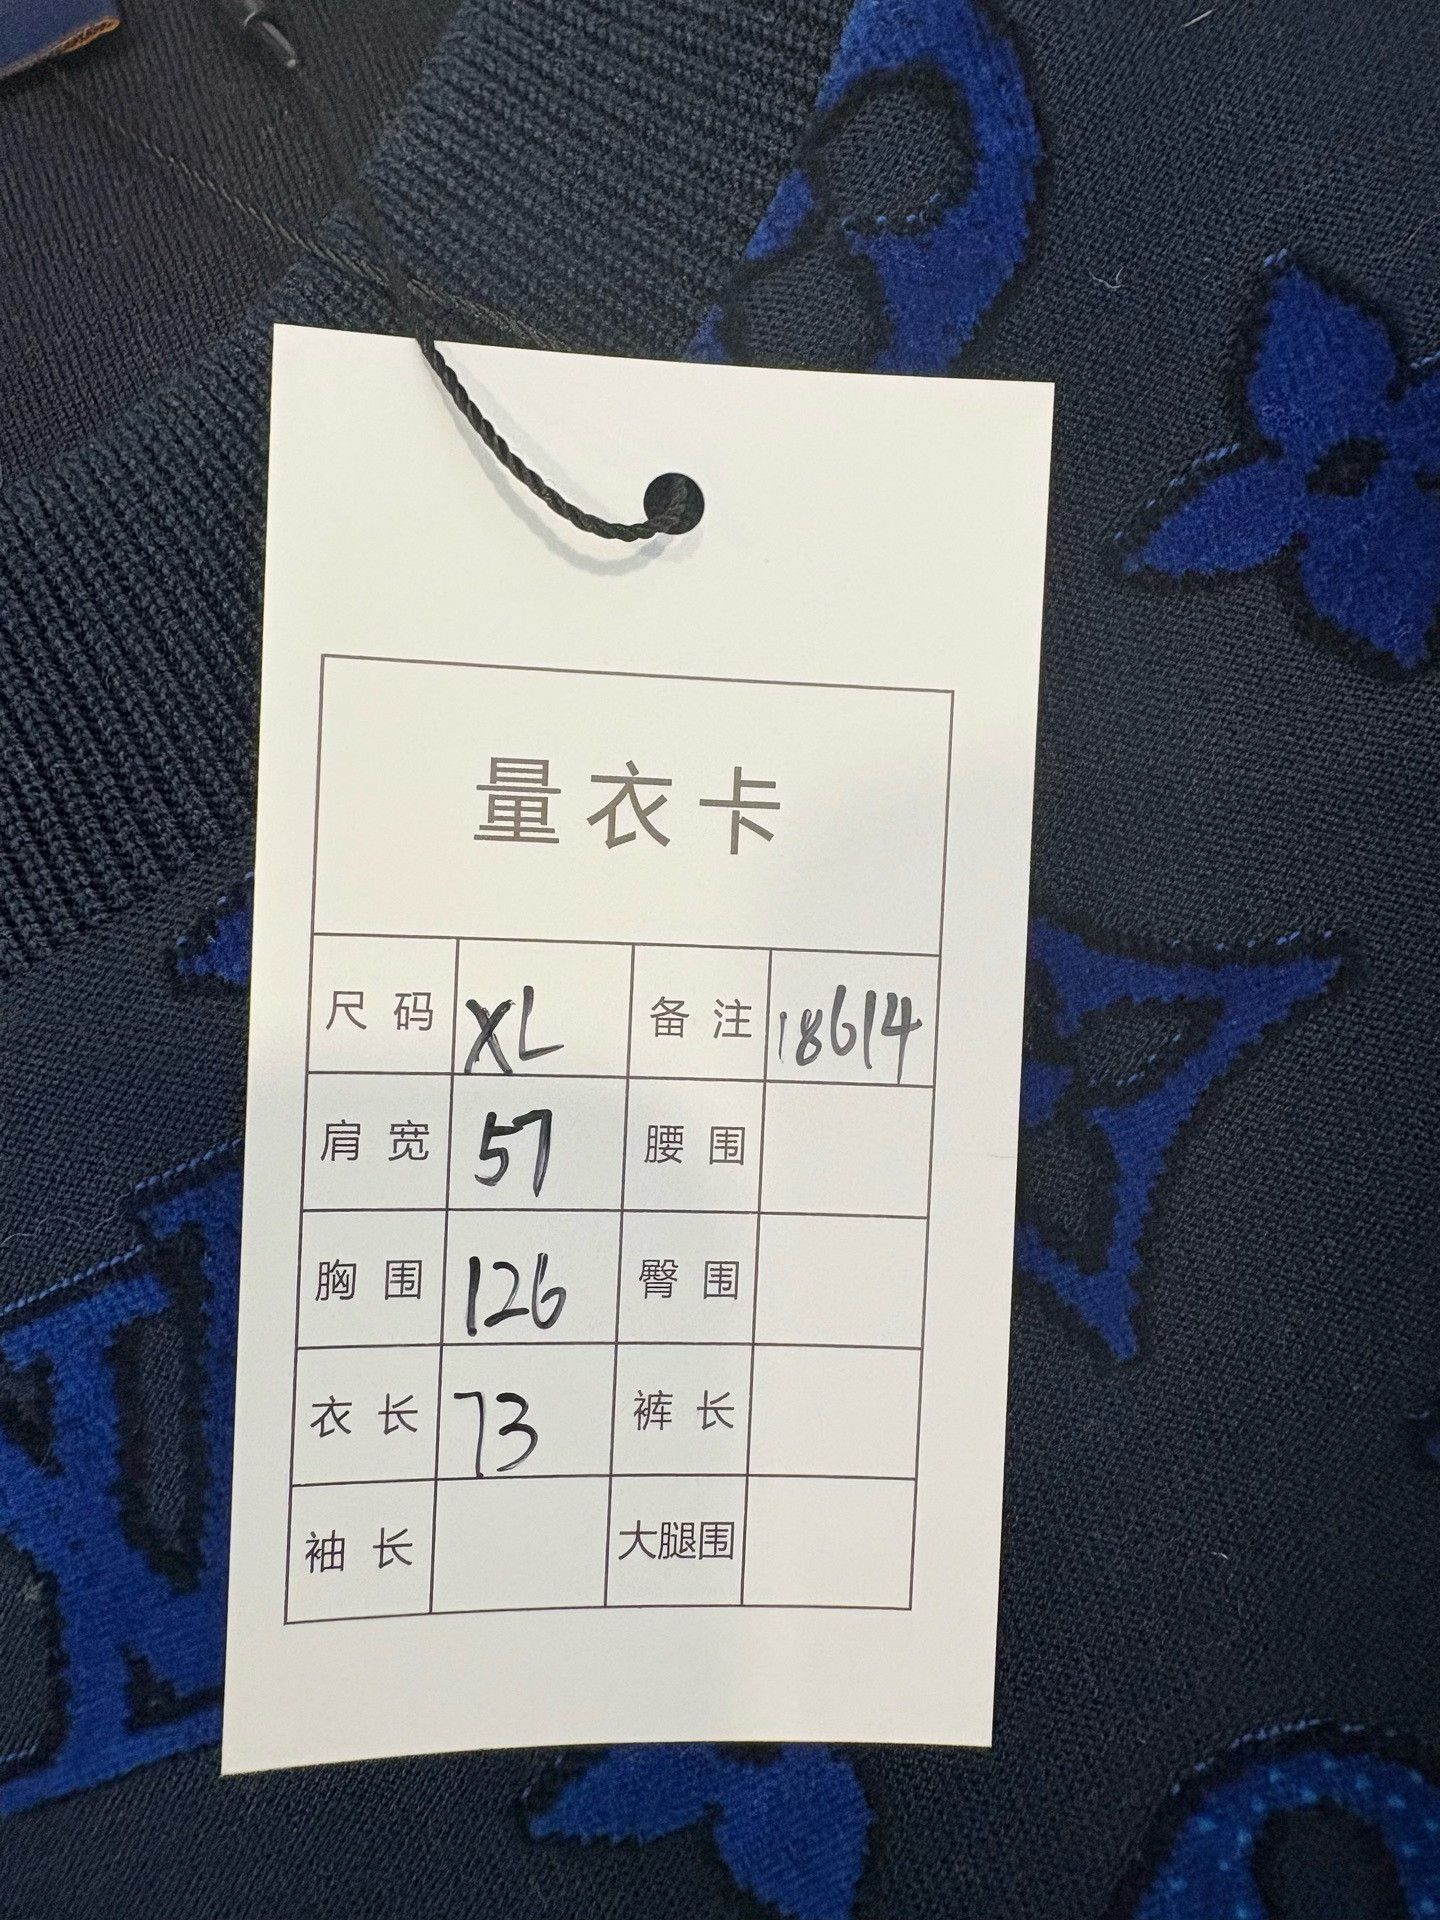 量衣卡
尺码 XL 备注 18614
肩宽 57 腰围
胸围 126 臀围
衣长 73 裤长
袖长 大腿围